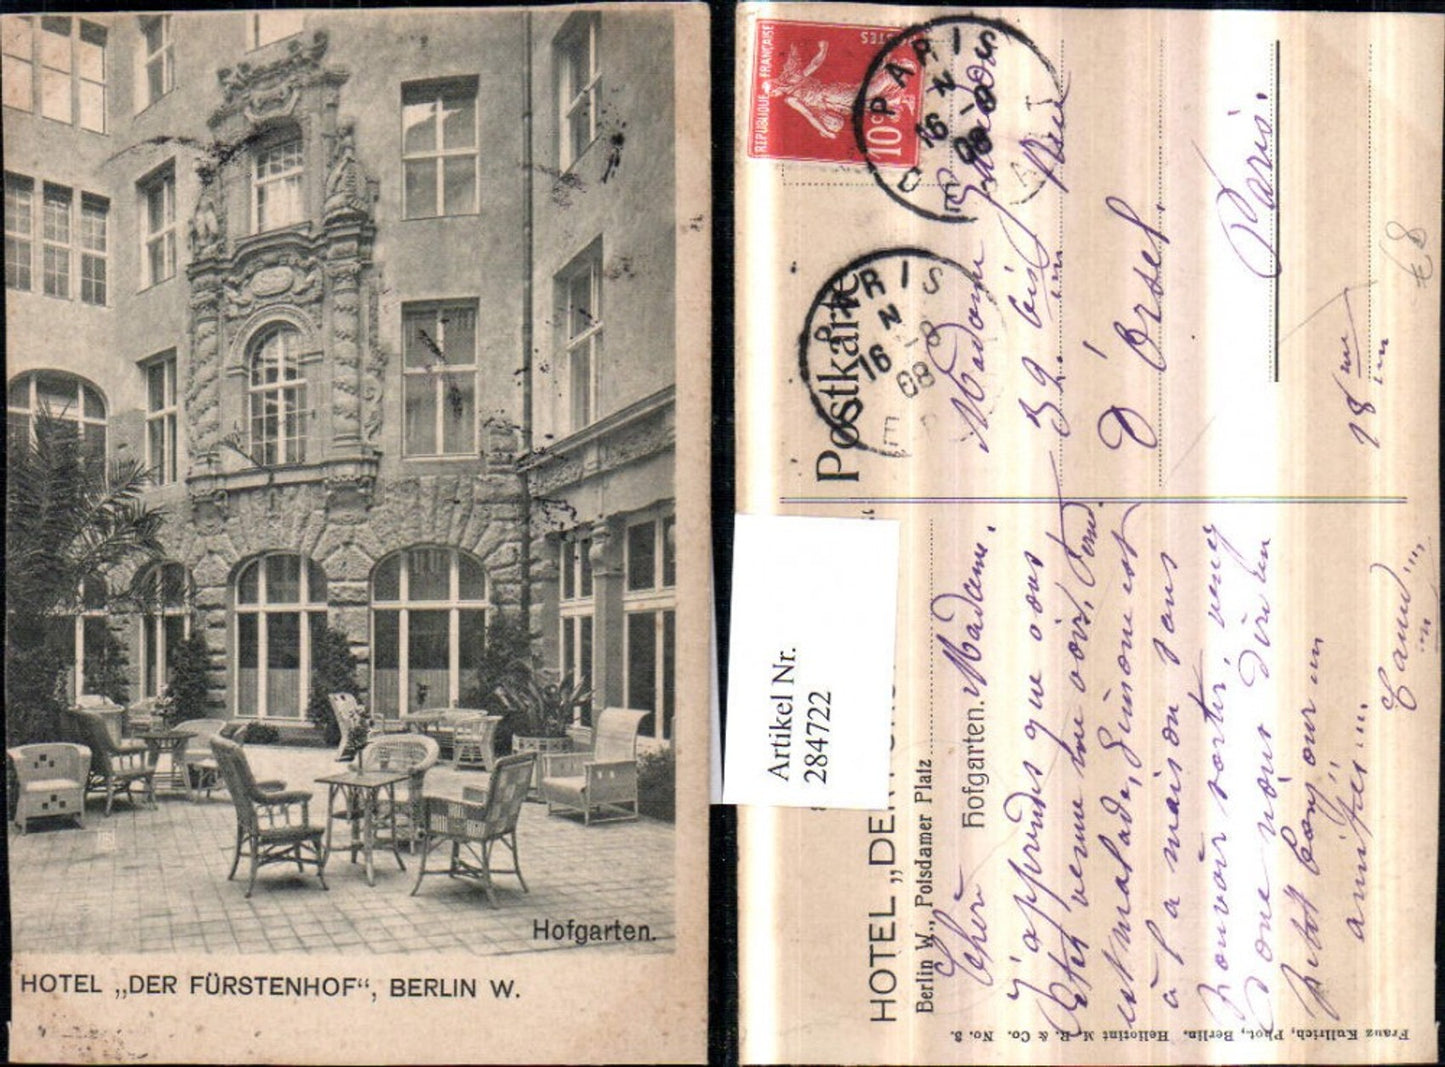 Hofgarten.
HOTEL „DER FÜRSTENHOF“, BERLIN W.
REPUBLIQUE FRANÇAISE
POSTES
10c
PARIS
16 -8
08
PARIS
16 -8
08
Postkarte
Artikel Nr.
284722
HOTEL „DER
Berlin W., Potsdamer Platz
Hofgarten.
Franz Kullrich, Phot., Berlin. Heliotint M. R. & Co. No. 3.
Madame
39 bis Rue
D'Orsel.
Paris.
18 me
Chère Madame.
J'apprends que vous
êtes venue me voir,
est malade, Simone est
à la maison sans
pouvoir sortir, venez
donc nous dire un
petit bonjour un
amitiés...